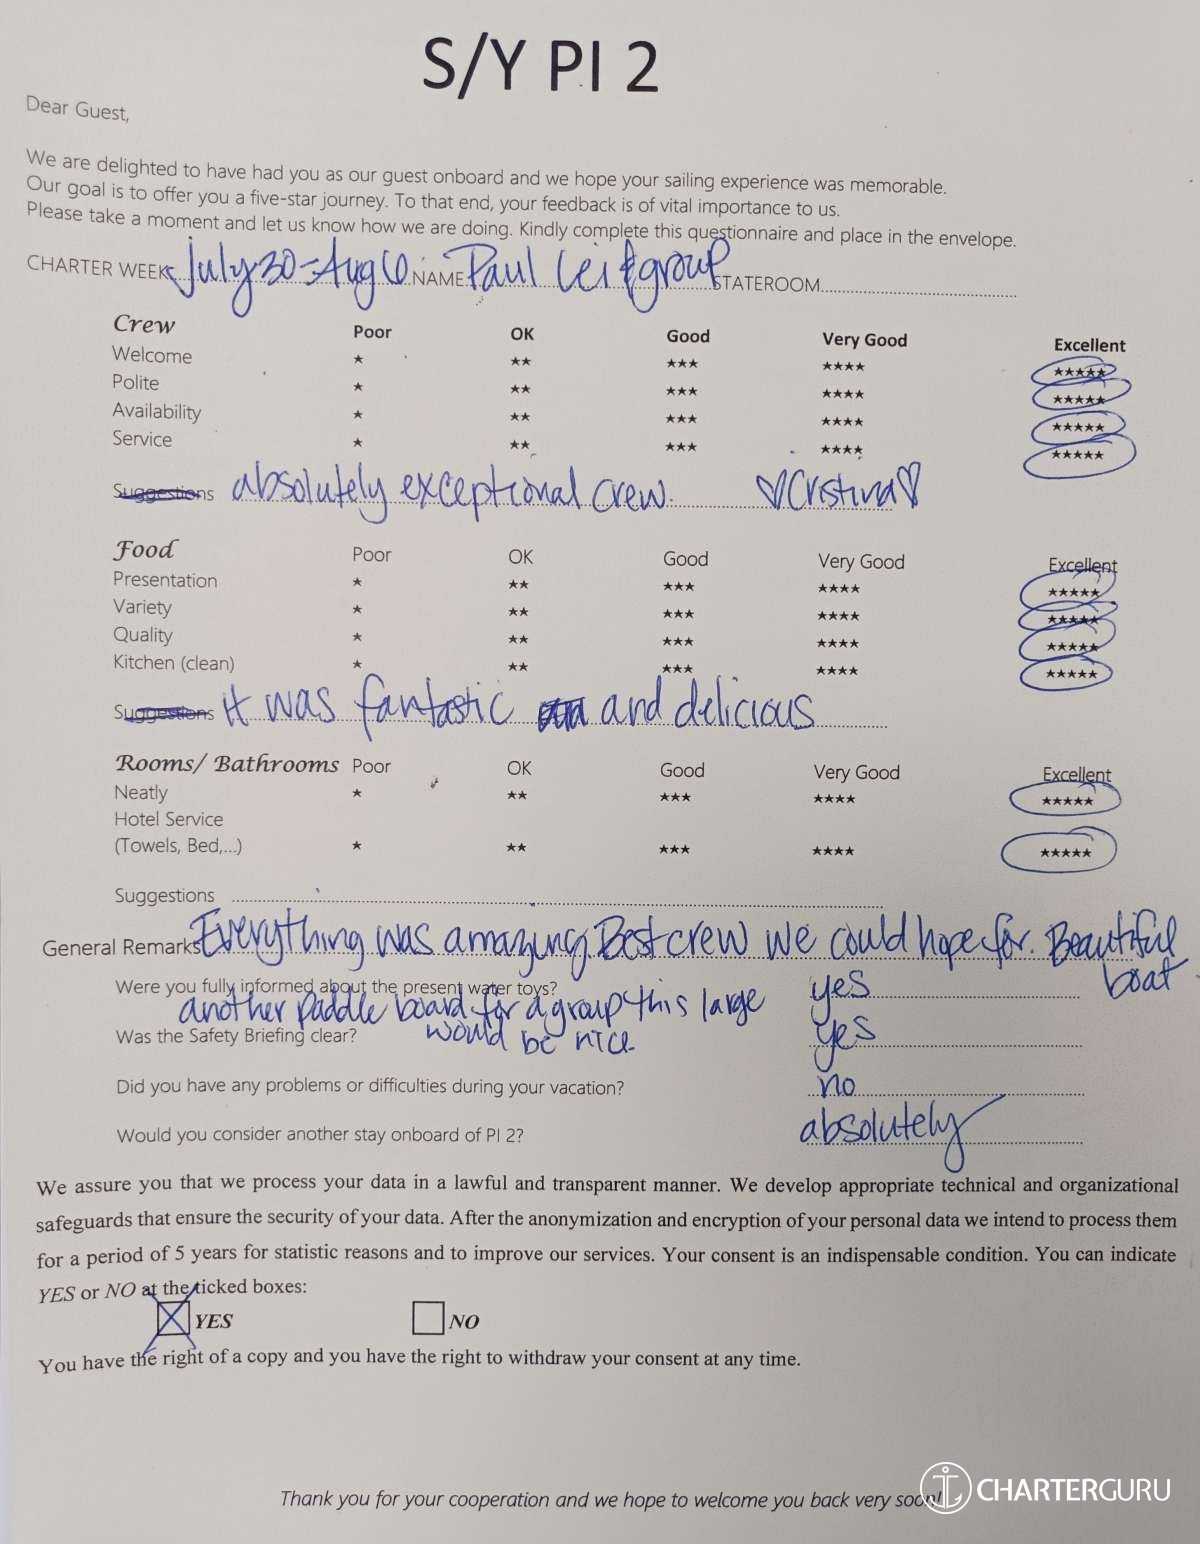 S/Y PI 2
Dear Guest,
We are delighted to have had you as our guest onboard and we hope your sailing experience was memorable.
Our goal is to offer you a five-star journey. To that end, your feedback is of vital importance to us.
Please take a moment and let us know how we are doing. Kindly complete this questionnaire and place in the envelope.
CHARTER WEEK July 30 - Aug 6 NAME Paul Lei & group STATEROOM
Crew Poor OK Good Very Good Excellent
Welcome ★ ★★ ★★★ ★★★★ ★★★★★
Polite ★ ★★ ★★★ ★★★★ ★★★★★
Availability ★ ★★ ★★★ ★★★★ ★★★★★
Service ★ ★★ ★★★ ★★★★ ★★★★★
Suggestions absolutely exceptional crew. ♡Cristina♡
Food Poor OK Good Very Good Excellent
Presentation ★ ★★ ★★★ ★★★★ ★★★★★
Variety ★ ★★ ★★★ ★★★★ ★★★★★
Quality ★ ★★ ★★★ ★★★★ ★★★★★
Kitchen (clean) ★ ★★ ★★★ ★★★★ ★★★★★
Suggestions it was fantastic and delicious
Rooms/ Bathrooms Poor OK Good Very Good Excellent
Neatly ★ ★★ ★★★ ★★★★ ★★★★★
Hotel Service
(Towels, Bed,...) ★ ★★ ★★★ ★★★★ ★★★★★
Suggestions
General Remarks Everything was amazing. Best crew we could hope for. Beautiful
boat
Were you fully informed about the present water toys? yes
another paddle board for a group this large
would be nice
Was the Safety Briefing clear? yes
Did you have any problems or difficulties during your vacation? no
Would you consider another stay onboard of PI 2? absolutely
We assure you that we process your data in a lawful and transparent manner. We develop appropriate technical and organizational
safeguards that ensure the security of your data. After the anonymization and encryption of your personal data we intend to process them
for a period of 5 years for statistic reasons and to improve our services. Your consent is an indispensable condition. You can indicate
YES or NO at the ticked boxes:
YES NO
You have the right of a copy and you have the right to withdraw your consent at any time.
Thank you for your cooperation and we hope to welcome you back very soon!
CHARTERGURU